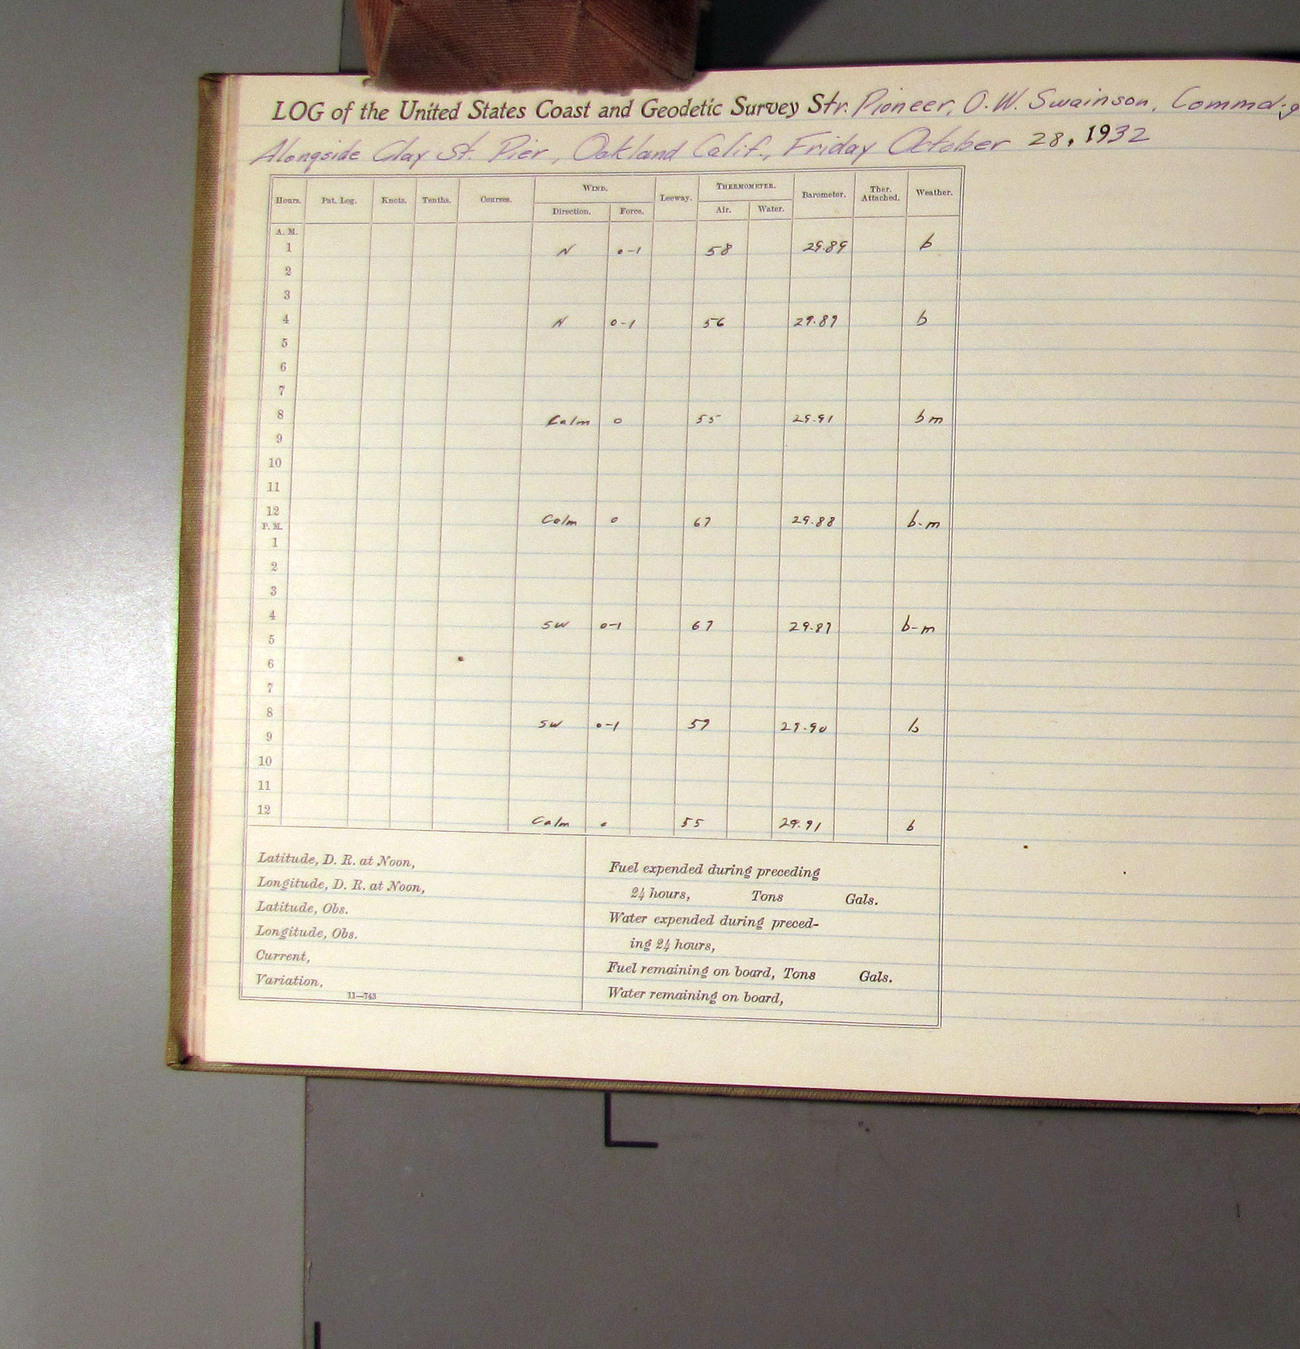 LOG of the United States Coast and Geodetic Survey Str. Pioneer, O. W. Swainson, Commd'g
Alongside Clay St. Pier, Oakland Calif., Friday October 28, 1932
Hours. Pat. Log. Knots. Tenths. Courses. WIND. Leeway. THERMOMETER. Barometer. Ther. Attached. Weather.
Direction. Force. Air. Water.
A. M.
1 N 0-1 58 29.89 b
2
3
4 N 0-1 56 29.89 b
5
6
7
8 Calm 0 55 29.91 bm
9
10
11
12 Calm 0 67 29.88 b-m
P. M.
1
2
3
4 SW 0-1 67 29.87 b-m
5
6
7
8 SW 0-1 59 29.90 b
9
10
11
12 Calm 0 55 29.91 b
Latitude, D. R. at Noon,
Longitude, D. R. at Noon,
Latitude, Obs.
Longitude, Obs.
Current,
Variation,
11—743
Fuel expended during preceding
24 hours, Tons Gals.
Water expended during preced-
ing 24 hours,
Fuel remaining on board, Tons Gals.
Water remaining on board,